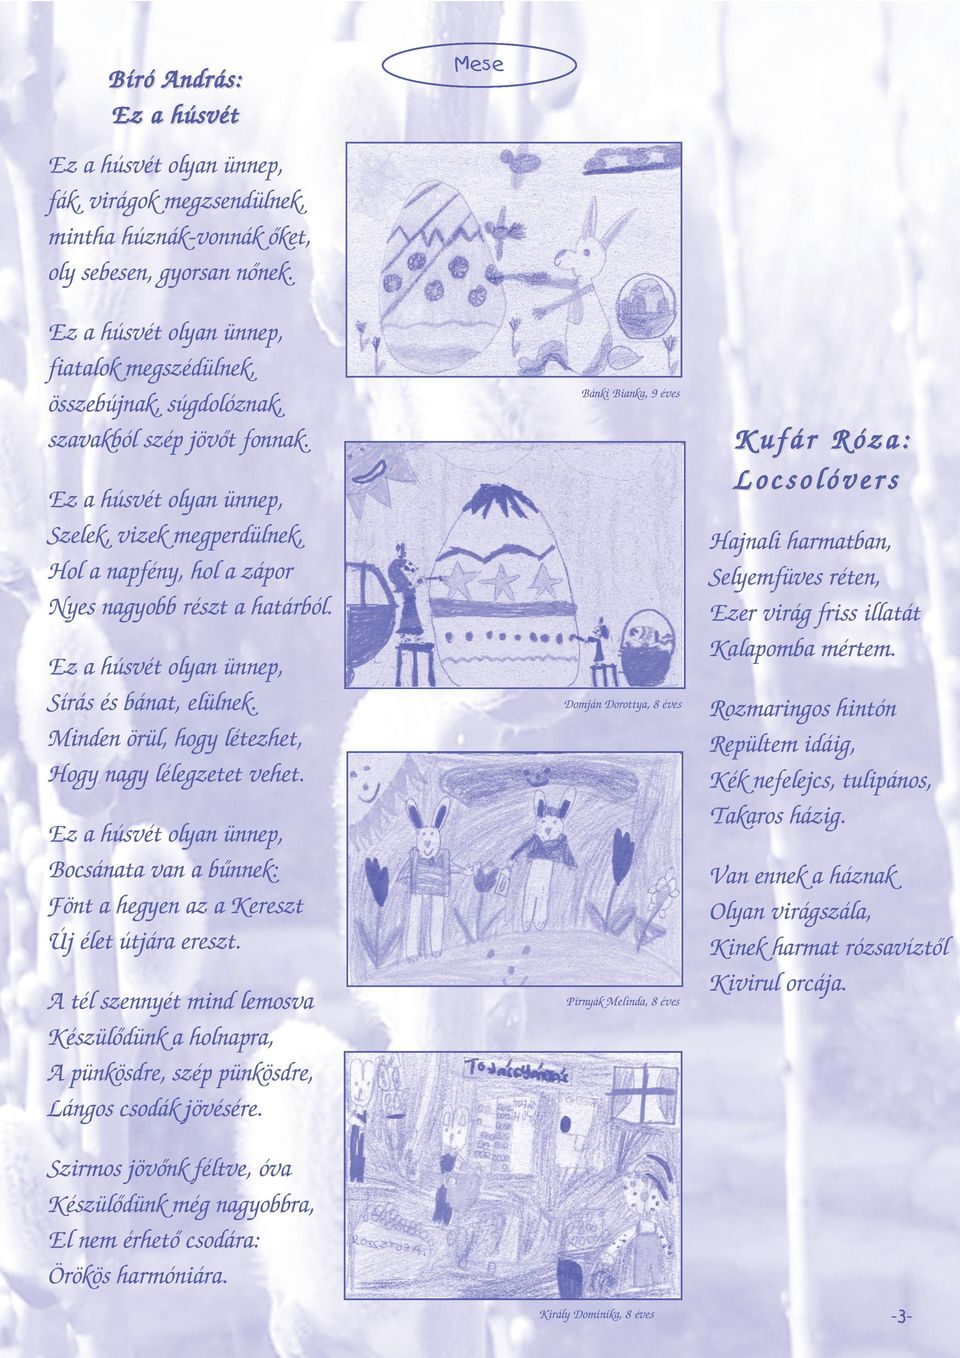 Mese
Bíró András:
Ez a húsvét
Ez a húsvét olyan ünnep,
fák, virágok megzsendülnek,
mintha húznák-vonnák őket,
oly sebesen, gyorsan nőnek.
Ez a húsvét olyan ünnep,
fiatalok megszédülnek,
összebújnak, súgdolóznak,
szavakból szép jövőt fonnak.
Ez a húsvét olyan ünnep,
Szelek, vizek megperdülnek,
Hol a napfény, hol a zápor
Nyes nagyobb részt a határból.
Ez a húsvét olyan ünnep,
Sírás és bánat, elülnek.
Minden örül, hogy létezhet,
Hogy nagy lélegzetet vehet.
Ez a húsvét olyan ünnep,
Bocsánata van a bűnnek:
Fönt a hegyen az a Kereszt
Új élet útjára ereszt.
A tél szennyét mind lemosva
Készülődünk a holnapra,
A pünkösdre, szép pünkösdre,
Lángos csodák jövésére.
Szirmos jövőnk féltve, óva
Készülődünk még nagyobbra,
El nem érhető csodára:
Örökös harmóniára.
Bánki Bianka, 9 éves
Domján Dorottya, 8 éves
Pirnyák Melinda, 8 éves
Király Dominika, 8 éves
Kufár Róza:
Locsolóvers
Hajnali harmatban,
Selyemfüves réten,
Ezer virág friss illatát
Kalapomba mértem.
Rozmaringos hintón
Repültem idáig,
Kék nefelejcs, tulipános,
Takaros házig.
Van ennek a háznak
Olyan virágszála,
Kinek harmat rózsavíztől
Kivirul orcája.
-3-